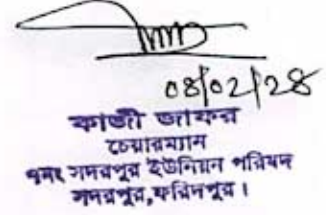 ০৪/০২/২৪
কাজী জাফর
চেয়ারম্যান
৭নং সদরপুর ইউনিয়ন পরিষদ
সদরপুর,ফরিদপুর।